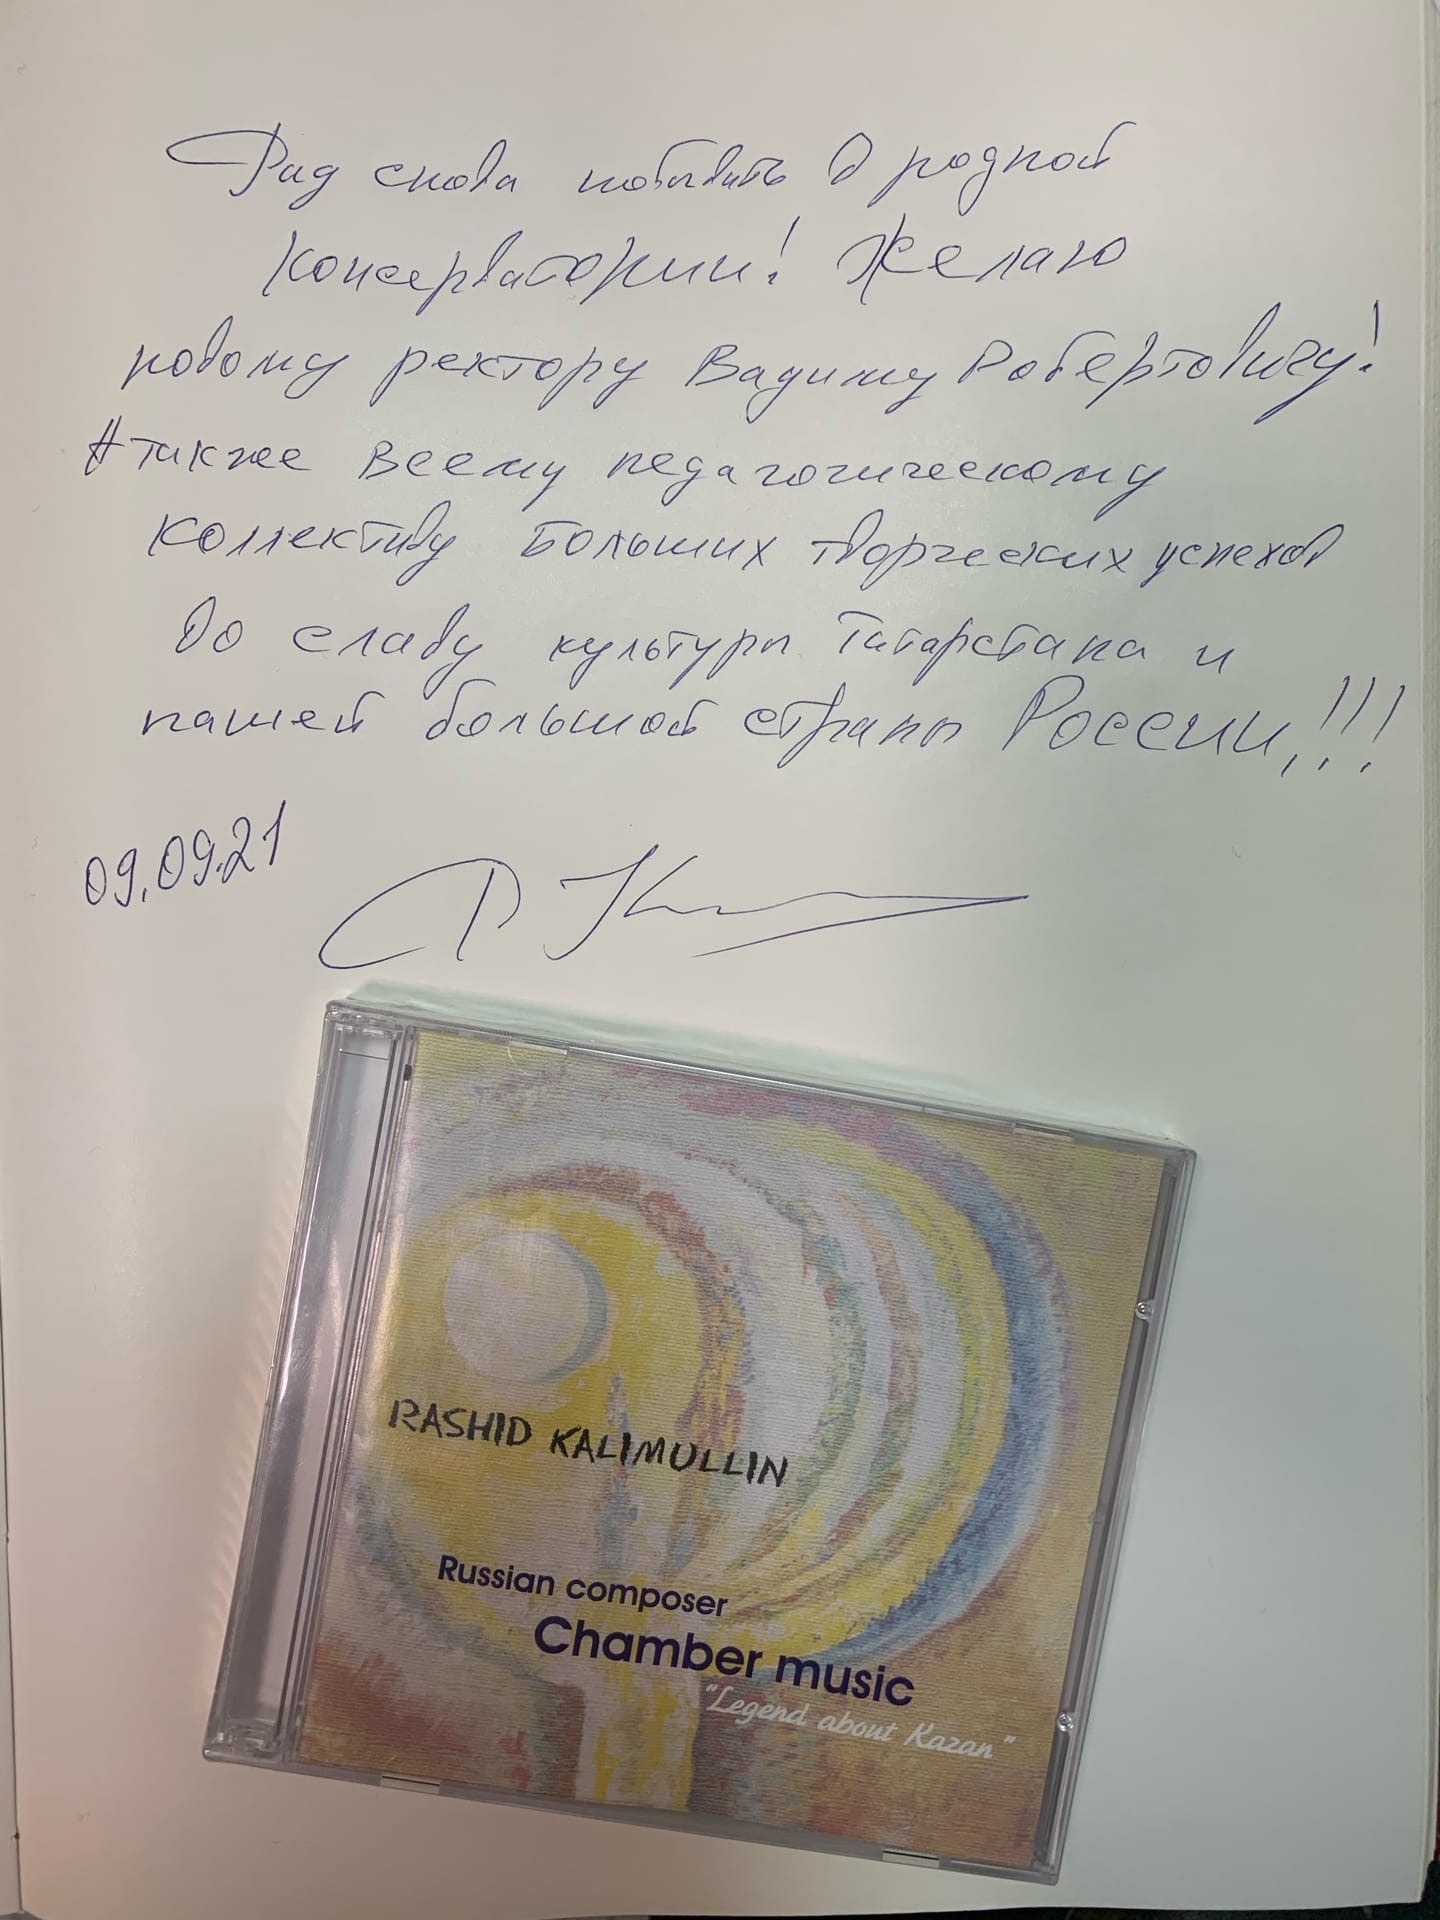 Рад снова побывать в родной
Консерватории! Желаю
новому ректору Вадиму Робертовичу!
А также всему педагогическому
коллективу больших творческих успехов
во славу культуры Татарстана и
нашей большой страны России!!!
09.09.21
RASHID KALIMULLIN
Russian composer
Chamber music
"Legend about Kazan"